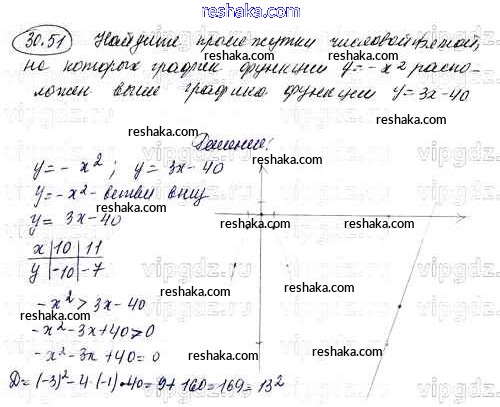 reshaka.com
30.51 Найдите промежутки числовой прямой,
на которых график функции y = -x² распо-
reshaka.com
ложен выше графика функции y = 3x - 40
reshaka.com
reshaka.com
Решение:
y = -x²; y = 3x - 40
reshaka.com
y = -x² - ветви вниз
reshaka.com
y = 3x - 40
reshaka.com
x | 10 | 11
y | -10 | -7
reshaka.com
-x² > 3x - 40
reshaka.com
-x² - 3x + 40 > 0
reshaka.com
-x² - 3x + 40 = 0
reshaka.com
D = (-3)² - 4·(-1)·40 = 9 + 160 = 169 = 13²
reshaka.com
vipgdz.ru